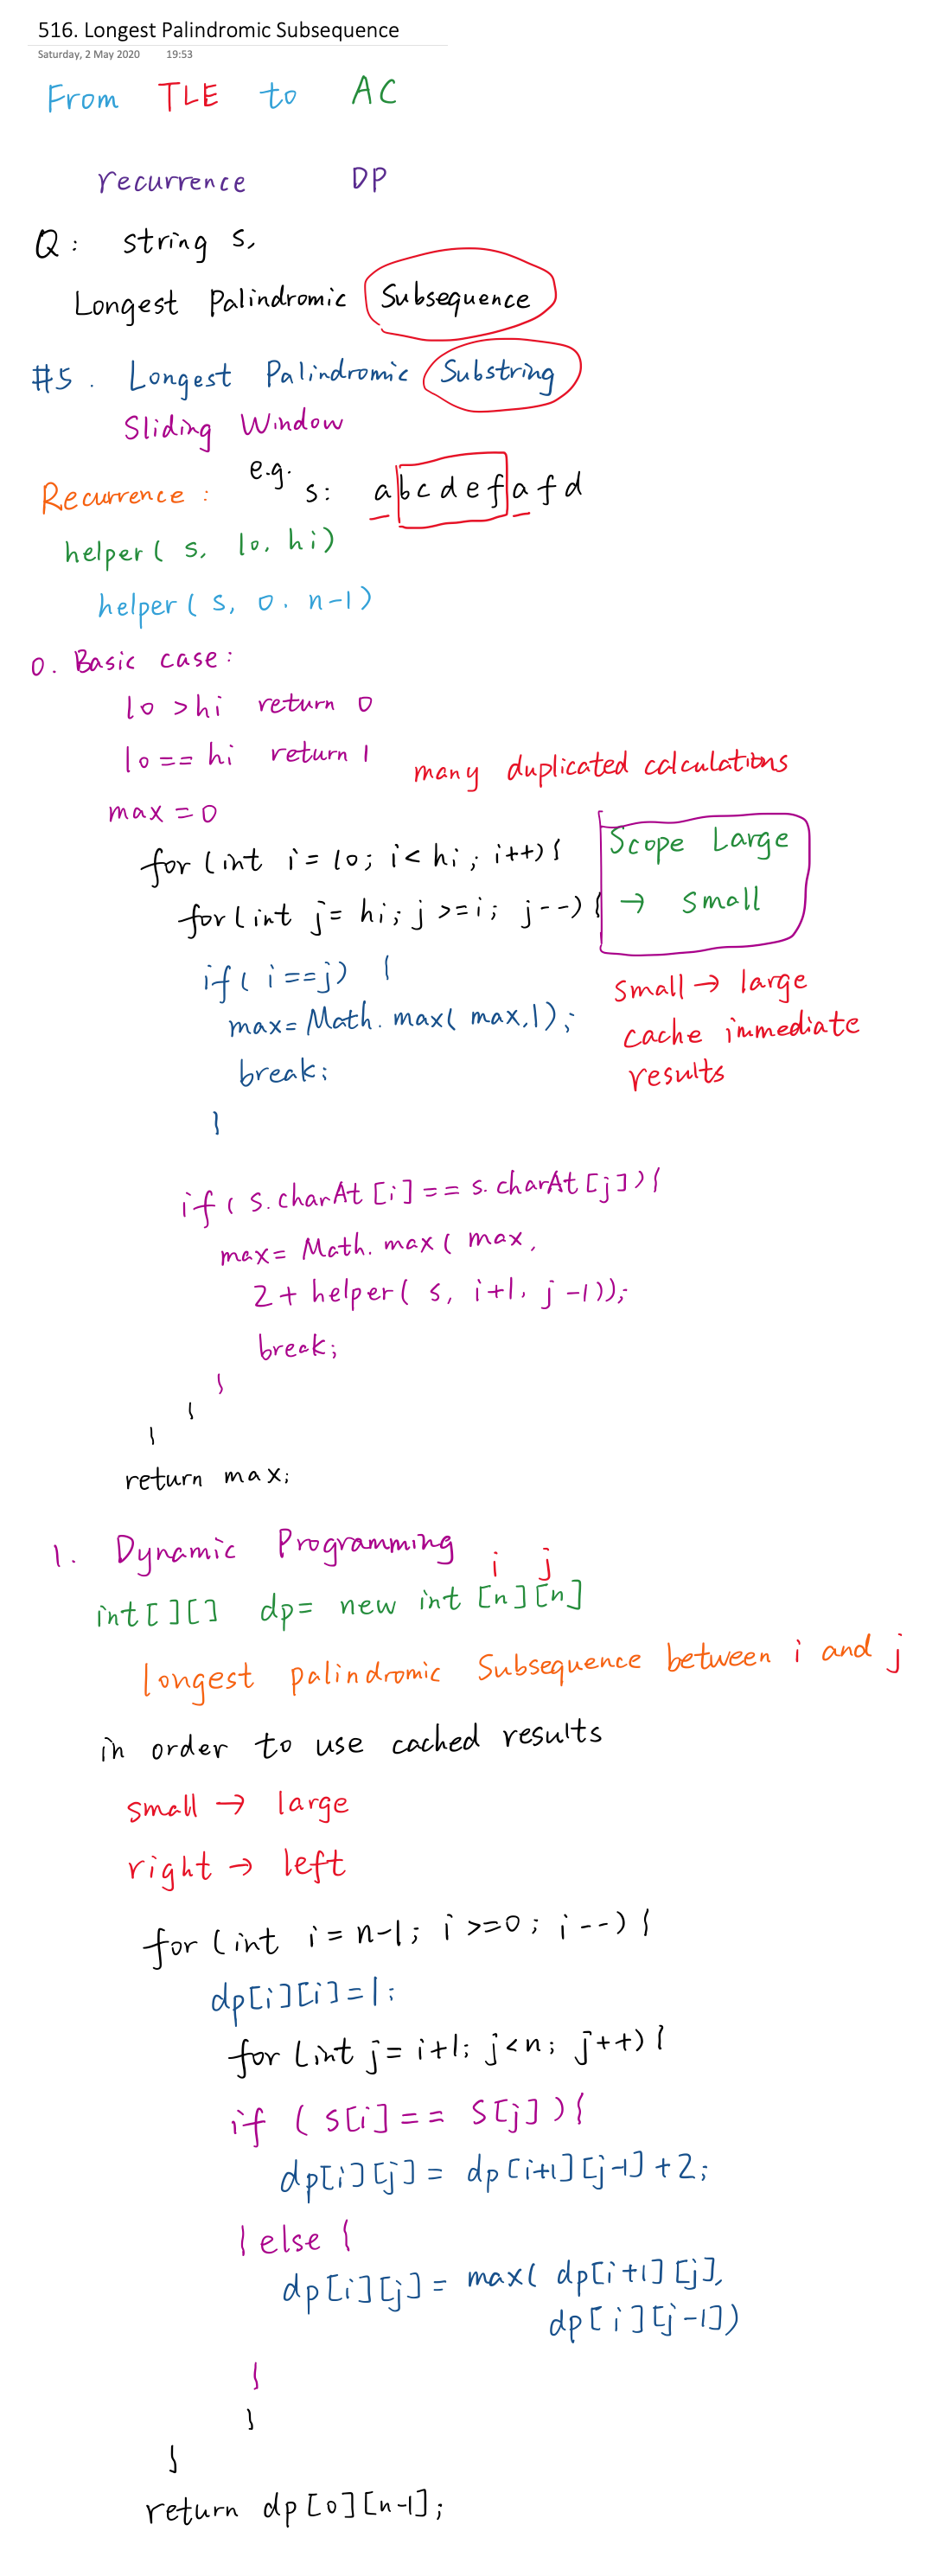 516. Longest Palindromic Subsequence
Saturday, 2 May 2020 19:53
From TLE to AC
recurrence DP
Q: string s,
Longest Palindromic Subsequence
#5. Longest Palindromic Substring
Sliding Window
Recurrence: e.g. s: abcdefafd
helper( s, lo, hi)
helper( s, 0, n-1)
0. Basic case:
lo >hi return 0
lo == hi return 1
many duplicated calculations
max = 0
for (int i = lo; i< hi; i++){
for(int j= hi; j >=i; j--){
Scope Large
→ small
if( i==j) {
max= Math.max( max,1);
break;
}
small → large
cache immediate
results
if( s.charAt[i] == s.charAt[j]){
max= Math.max( max,
2+ helper( s, i+1, j-1));
break;
}
}
}
return max;
1. Dynamic Programming
i j
int[][] dp= new int [n][n]
longest palindromic Subsequence between i and j
in order to use cached results
small → large
right → left
for (int i = n-1; i >=0; i--){
dp[i][i]=1;
for (int j= i+1; j<n; j++){
if ( S[i]== S[j]){
dp[i][j] = dp[i+1][j-1]+2;
} else {
dp[i][j]= max( dp[i+1][j],
dp[i][j-1])
}
}
}
return dp[0][n-1];